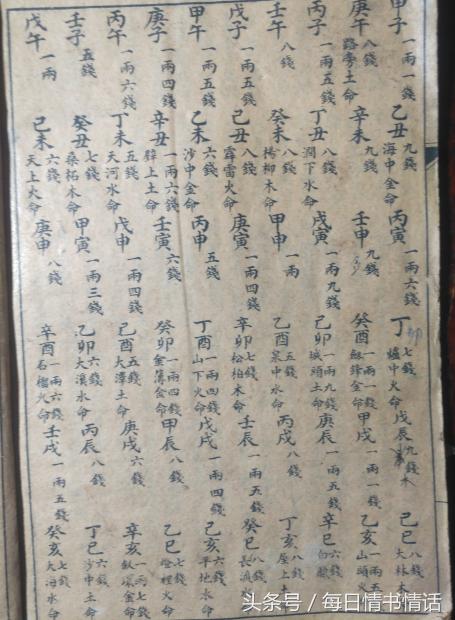 甲子 一兩一錢 乙丑 九錢 海中金命 丙寅 一兩六錢 丁卯 七錢 爐中火命 戊辰 九錢 木 己巳 八錢 大林木
庚午 八錢 路旁土命 辛未 九錢 壬申 九錢 癸酉 一兩一錢 釼鋒金命 甲戌 一兩一錢 乙亥 一兩五 山頭火
丙子 一兩五錢 丁丑 八錢 澗下水命 戊寅 一兩九錢 己卯 一兩九錢 城頭土命 庚辰 一兩五錢 辛巳 六錢 白臘
壬午 八錢 癸未 八錢 楊柳木命 甲申 一兩 乙酉 五錢 泉中水命 丙戌 八錢 丁亥 八錢 屋上
戊子 一兩五錢 己丑 八錢 霹雷火命 庚寅 一兩四錢 辛卯 七錢 松柏木命 壬辰 一兩五錢 癸巳 八錢 長流
甲午 一兩五錢 乙未 六錢 沙中金命 丙申 五錢 丁酉 一兩四錢 山下火命 戊戌 一兩四錢 己亥 六錢 平地水命
庚子 一兩四錢 辛丑 一兩六錢 辟上土命 壬寅 六錢 癸卯 一兩四錢 金簿金命 甲辰 八錢 乙巳 七錢 燈裡火命
丙午 一兩六錢 丁未 五錢 天河水命 戊申 一兩四錢 己酉 五錢 大澤土命 庚戌 六錢 辛亥 一兩七錢 釵環金命
壬子 五錢 癸丑 七錢 桑柘木命 甲寅 一兩三錢 乙卯 六錢 大溪水命 丙辰 八錢 丁巳 六錢 沙中土命
戊午 一兩 己未 六錢 天上火命 庚申 八錢 辛酉 一兩六錢 石榴火命 壬戌 一兩五錢 癸亥 七錢 大海水命
头条号 / 每日情书情话